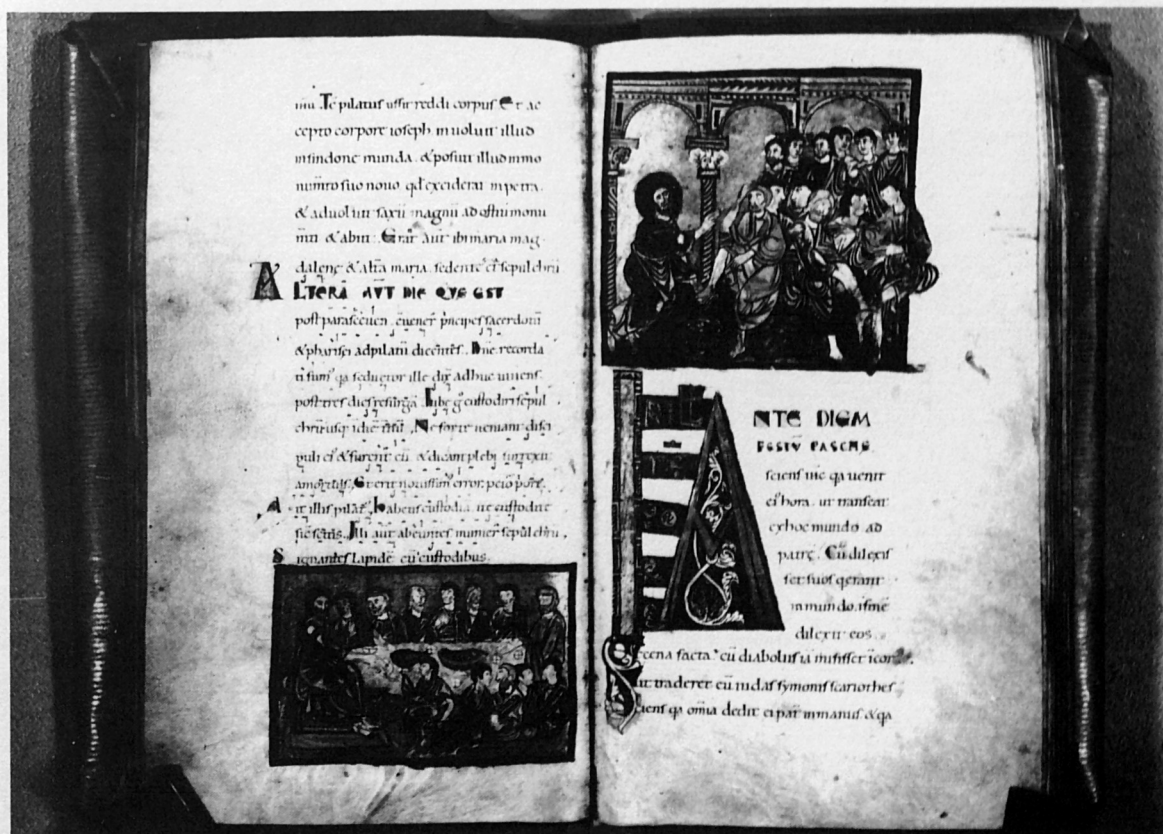 Pilatus iussit reddi corpus Et ac
cepto corpore ioseph inuoluit illud
insindone munda. & posuit illud in mo
suo nouo qd exciderat inpetra.
& aduoluit saxū magnū ad monu
& abiit. Erat aut ibi maria mag
dalene & altra maria. sedentes sepulchrū
ALTERA AUT DIE QUE EST
post parasceuen. principes sacerdotū
& pharisei adpilatū dicentes. Dne recorda
ti sum qa seductor ille adhuc uiuens.
post tres dies Iube custodiri sepul
chrū usq Ne forte ueniant disci
puli & furent eū & dicant plebi surrexit
Et erit nouissim error peior
illis pilat. habens custodiā. ite custodite
Illi aut abeuntes sepulchrū.
Signantes lapidē cū custodibus.
ANTE DIEM
FESTŪ PASCHE
sciens qa uenit
hora. ut transeat
exhoc mundo ad
patrē. Cū dilexis
set suos qerant
inmundo. infinē
dilexit eos.
cena facta. cū diabolus iā misisset
ut traderet eū iudas symonis scariothes
sciens qa omia dedit ei pat inmanus & qa